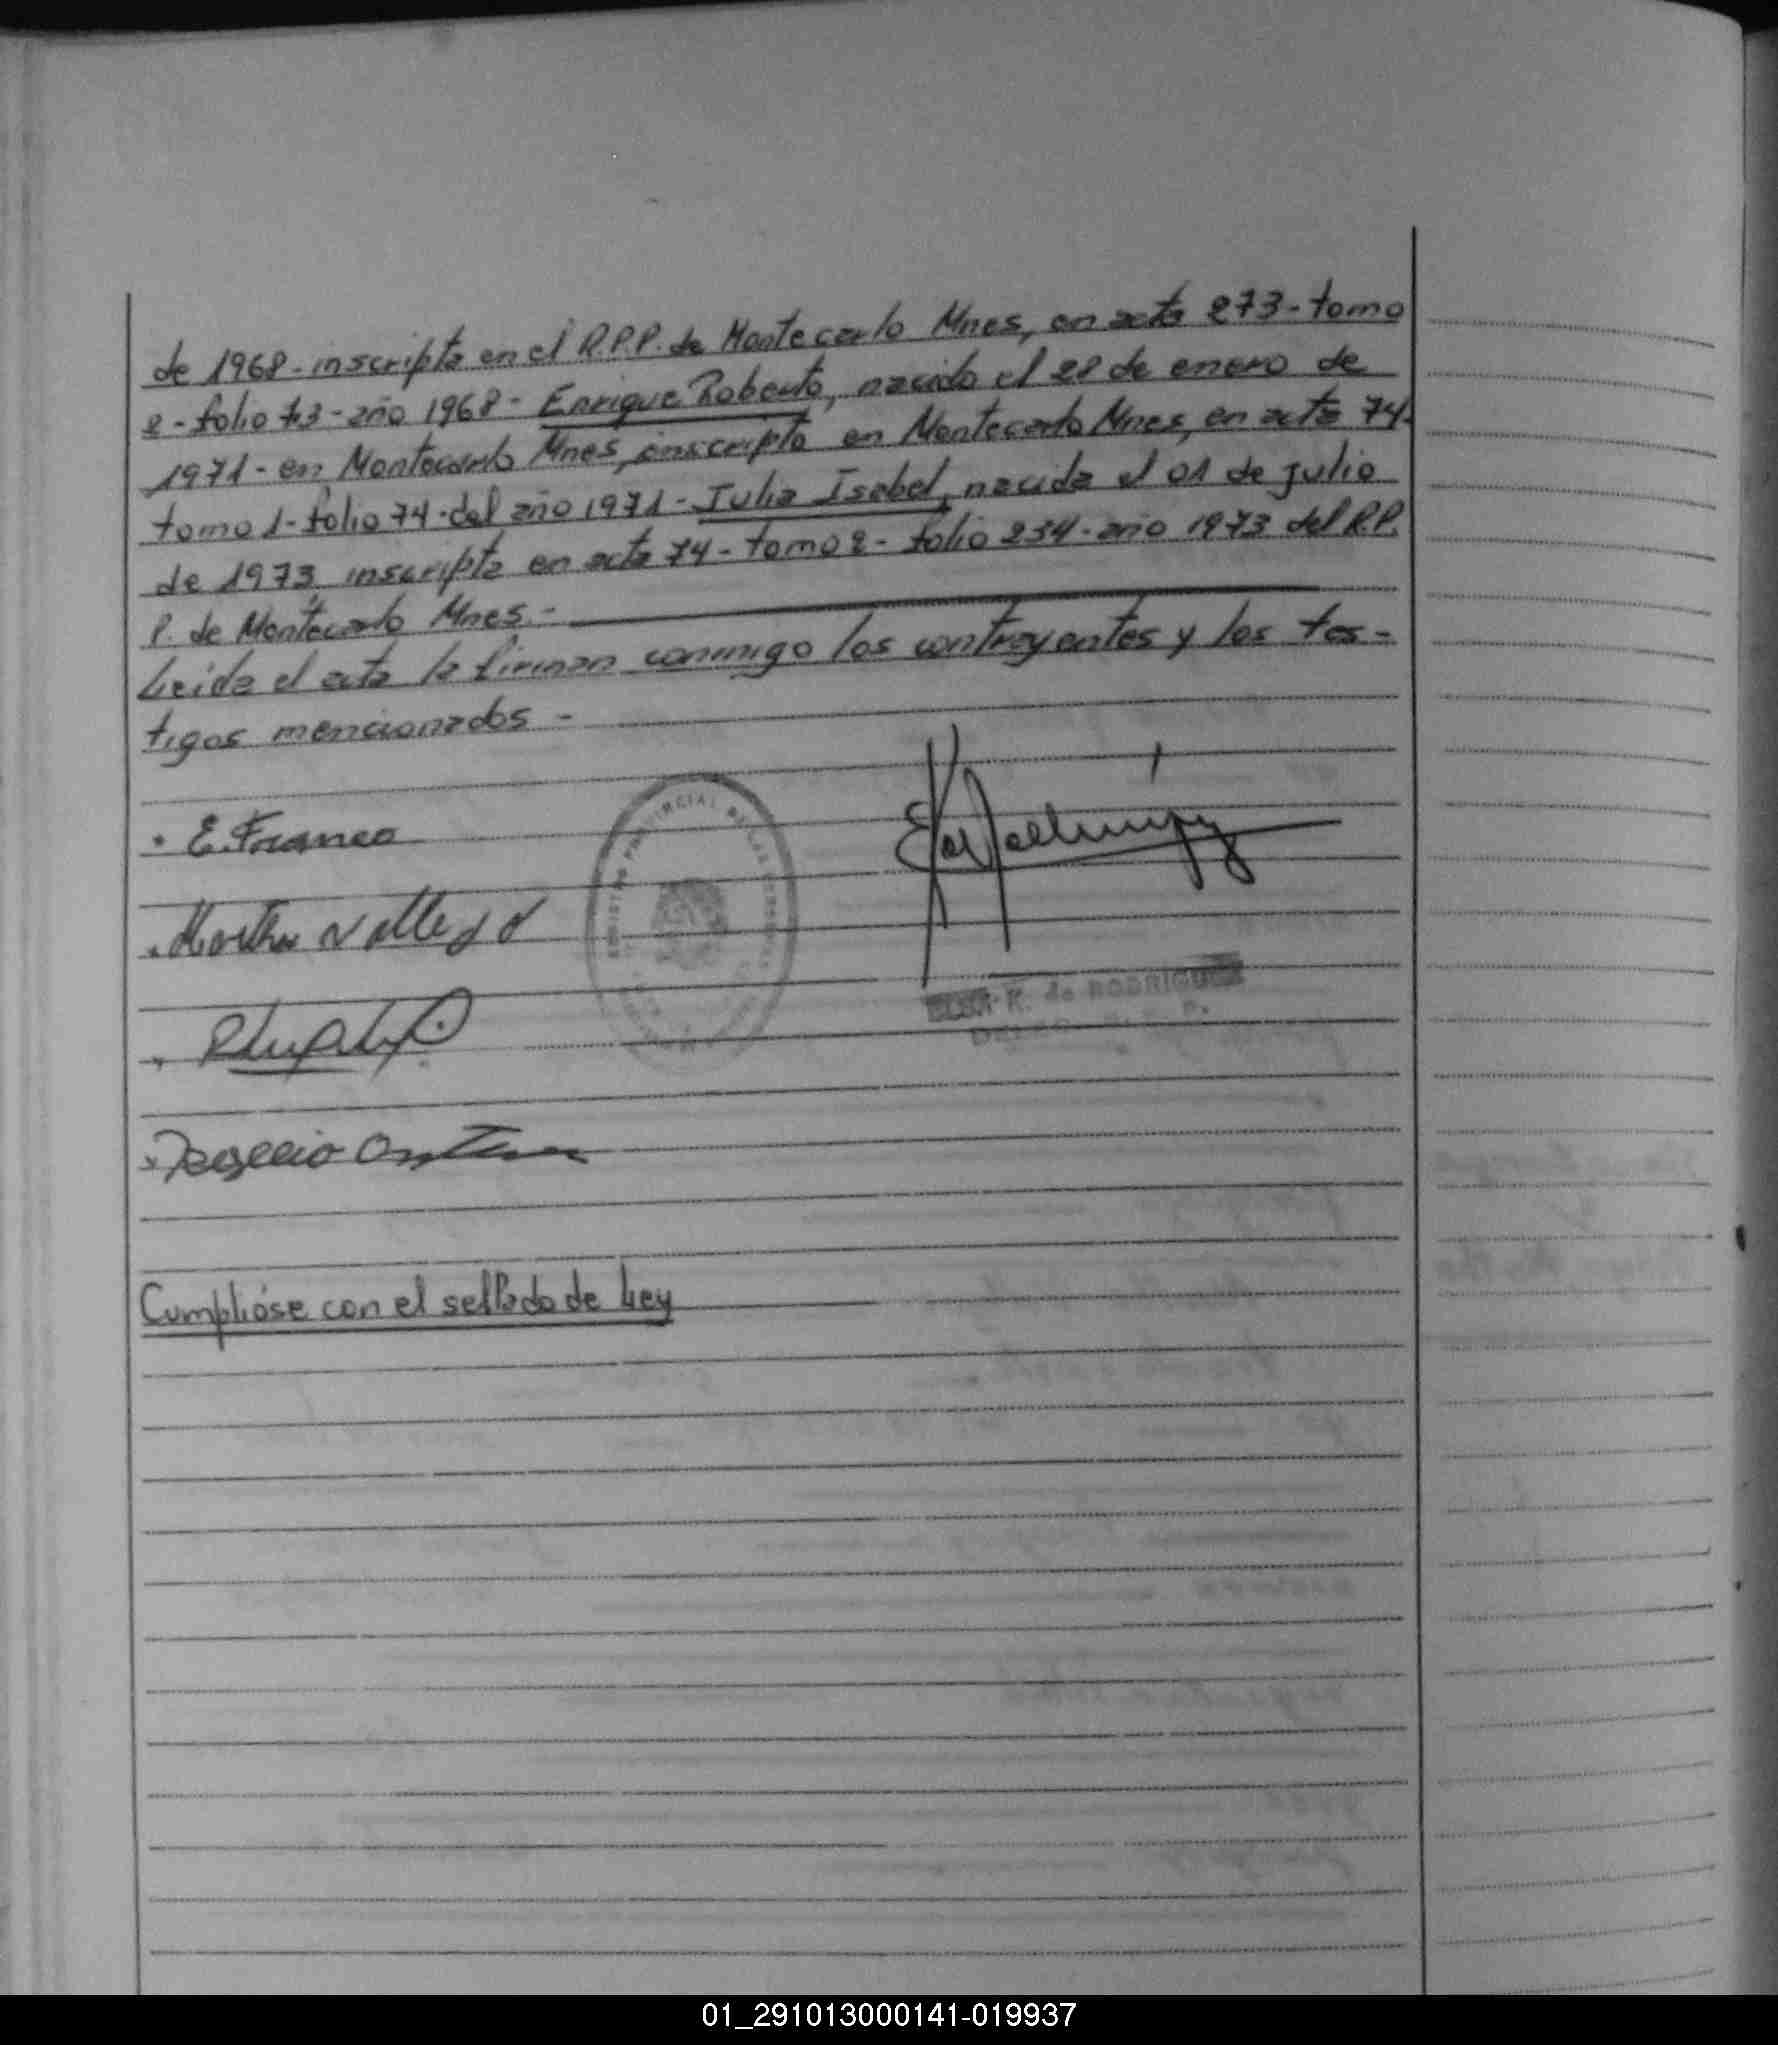 de 1968-inscripta en el R.P.P. de Montecarlo Mnes, en acta 273-tomo
2-folio 73-año 1968- Enrique Roberto, nacido el 28 de enero de
1971-en Montecarlo Mnes, inscripto en Montecarlo Mnes, en acta 74-
tomo 1-folio 74-del año 1971- Julia Isabel, nacida el 01 de julio
de 1973, inscripta en acta 74-tomo 2-folio 234-año 1973 del R.P.
P. de Montecarlo Mnes.-
Leida el acta la firman conmigo los contrayentes y los tes-
tigos mencionados-
E. Franco
Martha Vallejo
REGISTRO PROVINCIAL DE LAS PERSONAS
ELSA K. de RODRIGUEZ
Rogelio
Cumplióse con el sellado de Ley
01_291013000141-019937